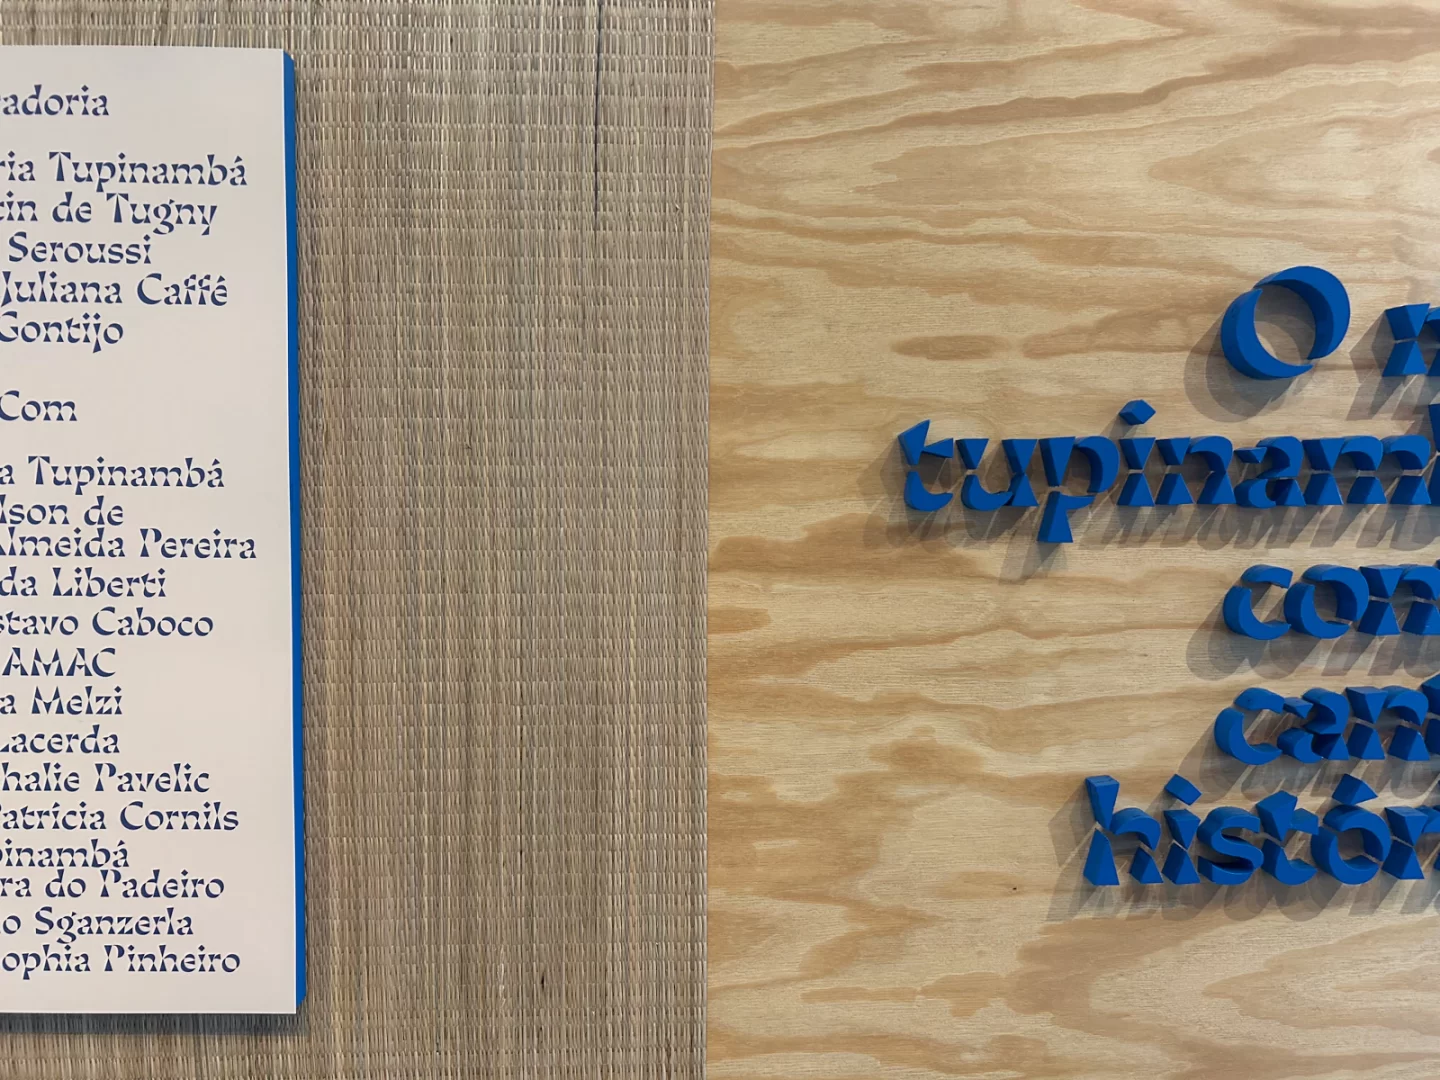 adoria
ria Tupinambá
tin de Tugny
Seroussi
Juliana Caffé
Gontijo
Com
a Tupinambá
lson de
Almeida Pereira
da Liberti
stavo Caboco
AMAC
a Melzi
Lacerda
halie Pavelic
Patrícia Cornils
pinambá
ra do Padeiro
o Sganzerla
ophia Pinheiro
O
tupinamb
com
cam
histór